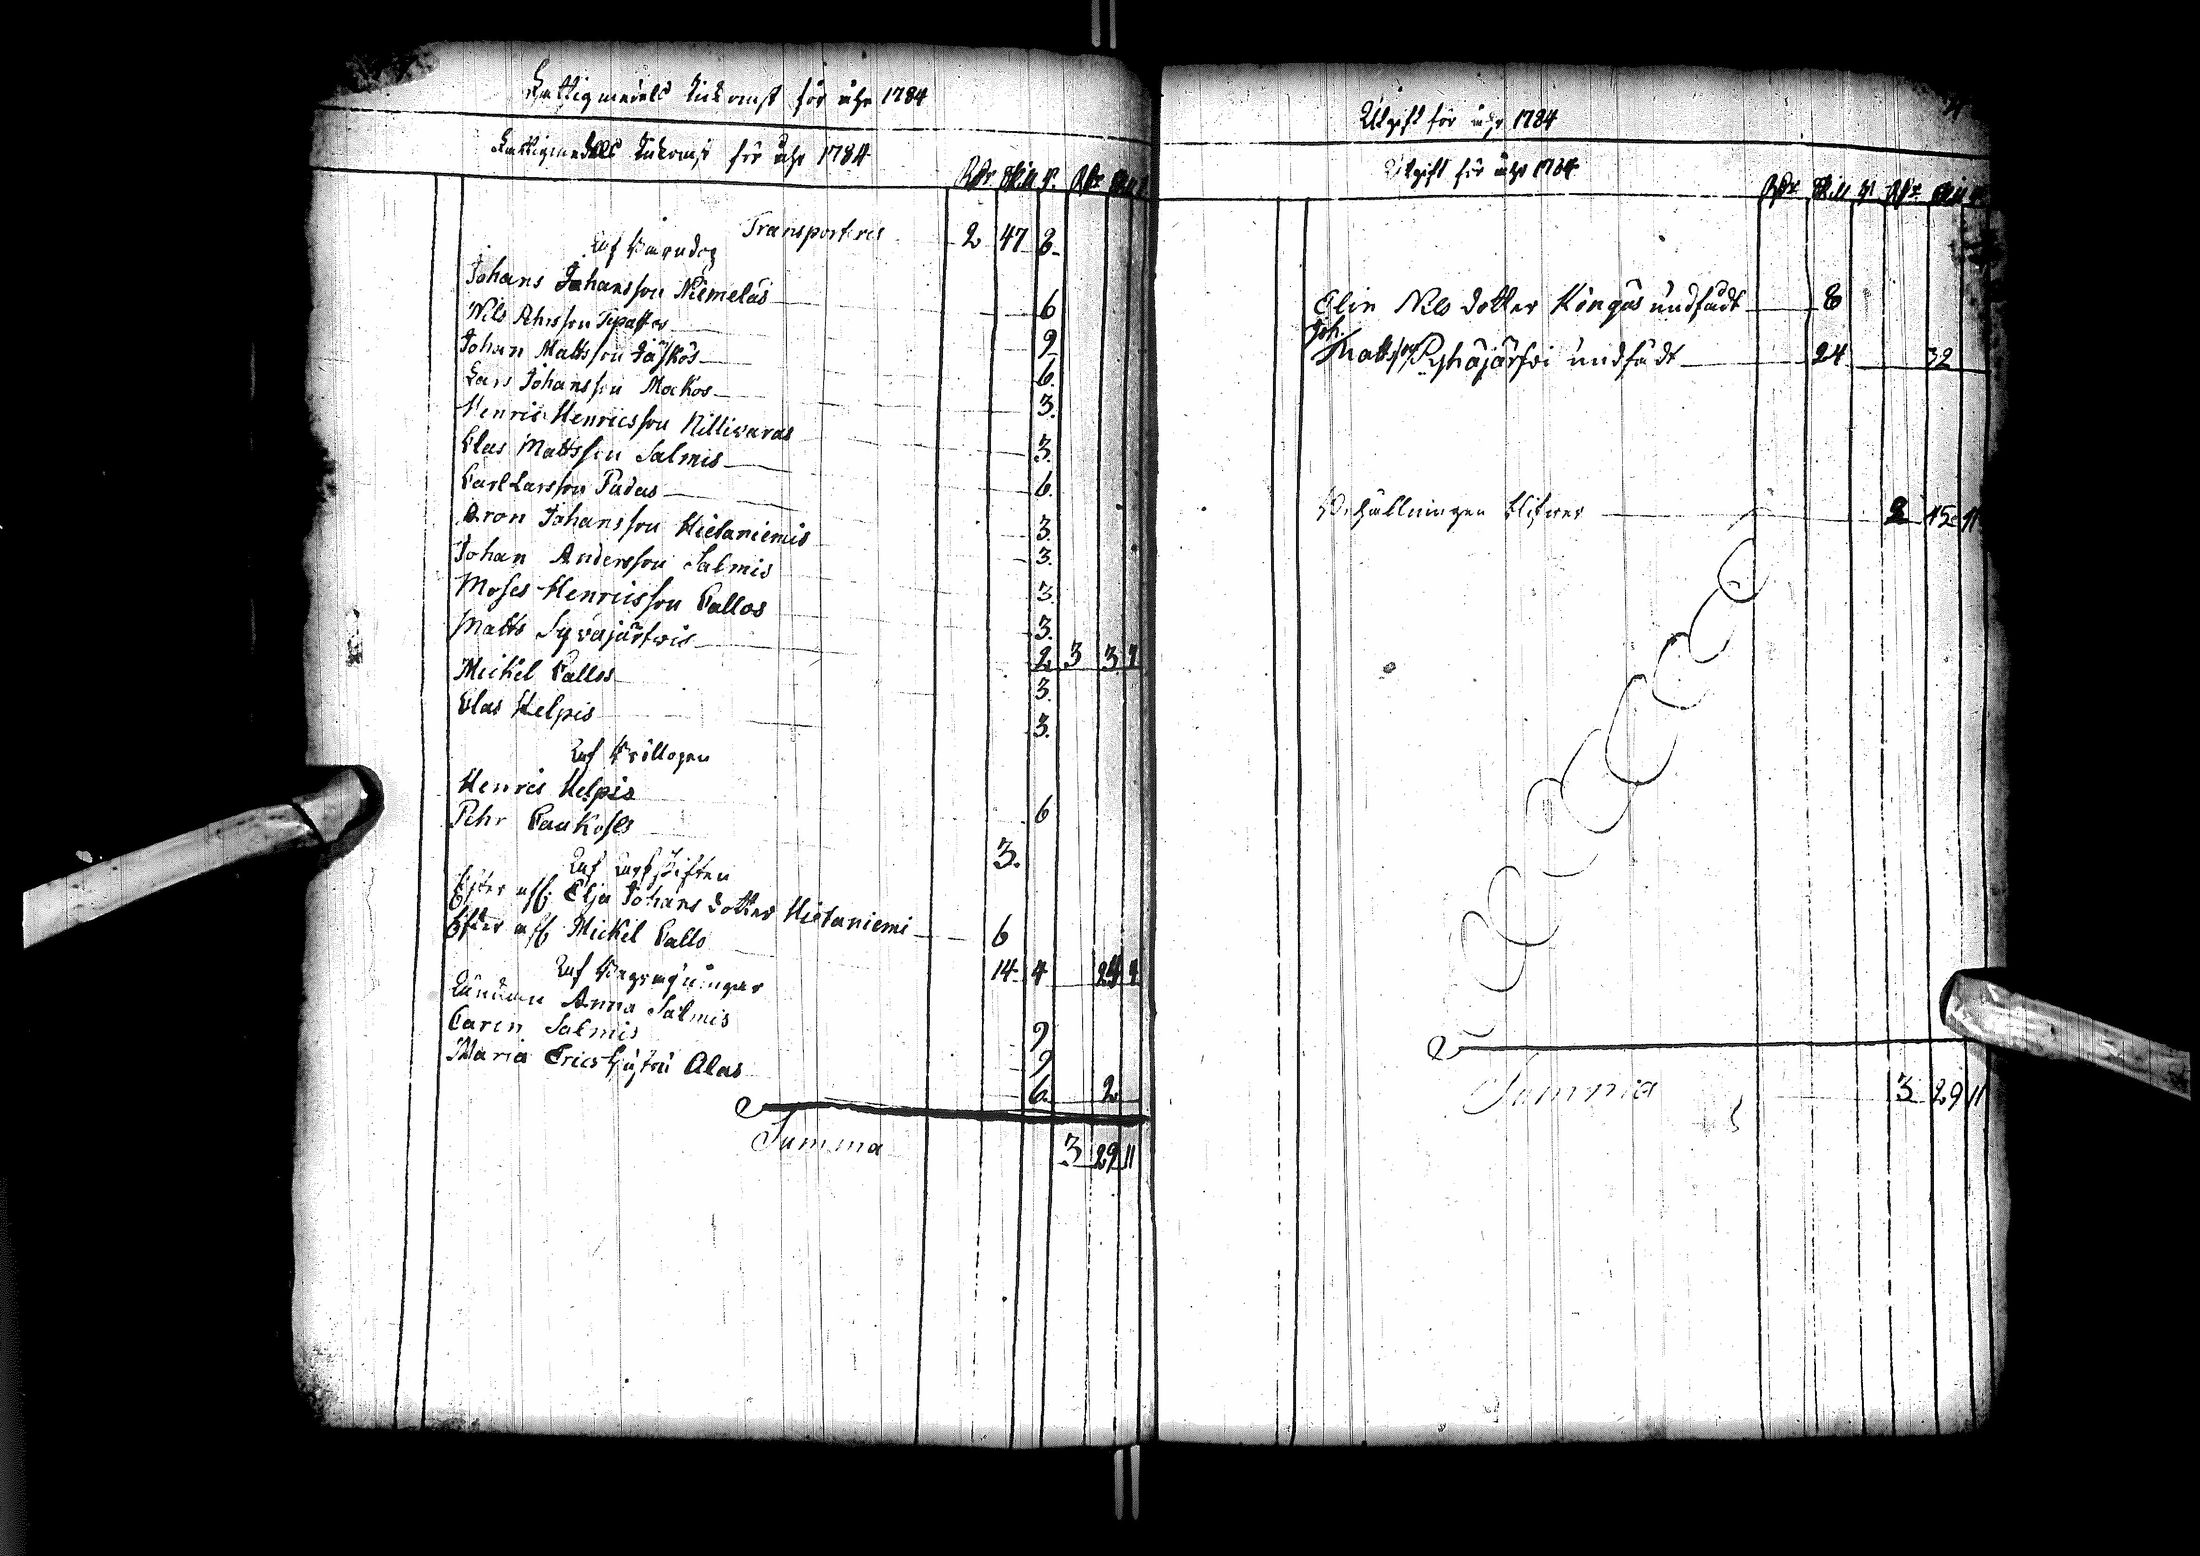 Fattigmedels Inkomst för åhr 1784
Fattigmedels Inkomst för åhr 1784
Rdr Skill r. Rdr Skill
Transporteres 2 47 8.
Af Barndop
Johans Johansson Niemeläs 6
Nils Ahrsson 9
Johan Mattsson Jäskös 6.
Lars Johansson Mackos 3.
Henric Henricsson Killivaras 3.
Clas Mattsson Salmis 6.
Carl Larsson Padas 3.
Aron Johansson Hietaniemis 3.
Johan Andersson Salmis 3.
Moses Henricsson Pallos 3.
Matts Syväjärfwis 2 3 3 7
Mickel Pallos 3.
Clas Helpis 3.
Af Bröllopen
Henrics Helpis 6
Pehr Paukoses 3.
Efter afl. Elsa Johans dotter Hietaniemi 6
Efter afl. Mickel Pallo 14 4 24 4
Af Begrafningar
Anna Salmis 9
Caren Salmis 9
Maria Erics Hustru Alas 6 2
Summa 3 29 11
Utgift för åhr 1784
Utgift för åhr 1784
Rdr Skill r. Rdr Skill r.
Elin Nils dotter Kingäs undfådt 8
Joh.
Mattss. Pyhäjärfwi undfådt 24 32
Behållningen blifwer 2 45 11
Summa 3 29 11